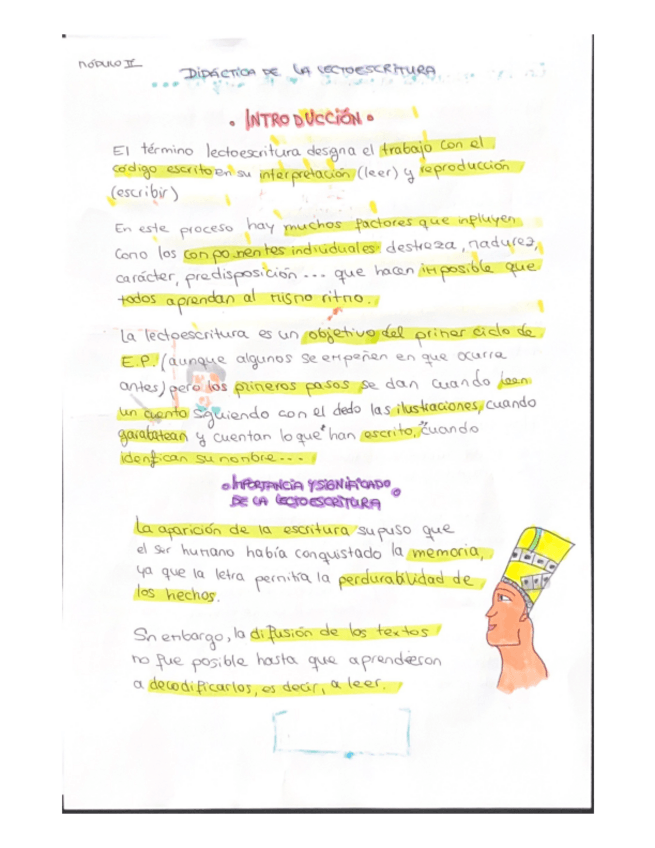 MÓDULO II
DIDÁCTICA DE LA LECTOESCRITURA
• INTRODUCCIÓN •
El término lectoescritura designa el trabajo con el
código escrito en su interpretación (leer) y reproducción
(escribir)
En este proceso hay muchos factores que influyen
como los componentes individuales: destreza, madurez,
carácter, predisposición... que hacen imposible que
todos aprendan al mismo ritmo.
La lectoescritura es un objetivo del primer ciclo de
E.P. (aunque algunos se empeñen en que ocurra
antes) pero los primeros pasos se dan cuando leen
un cuento siguiendo con el dedo las ilustraciones, cuando
garabatean y cuentan lo que "han escrito," cuando
idenfican su nombre...
• IMPORTANCIA Y SIGNIFICADO
DE LA LECTOESCRITURA •
La aparición de la escritura supuso que
el ser humano había conquistado la memoria,
ya que la letra permitía la perdurabilidad de
los hechos.
Sin embargo, la difusión de los textos
no fue posible hasta que aprendieron
a decodificarlos, es decir, a leer.